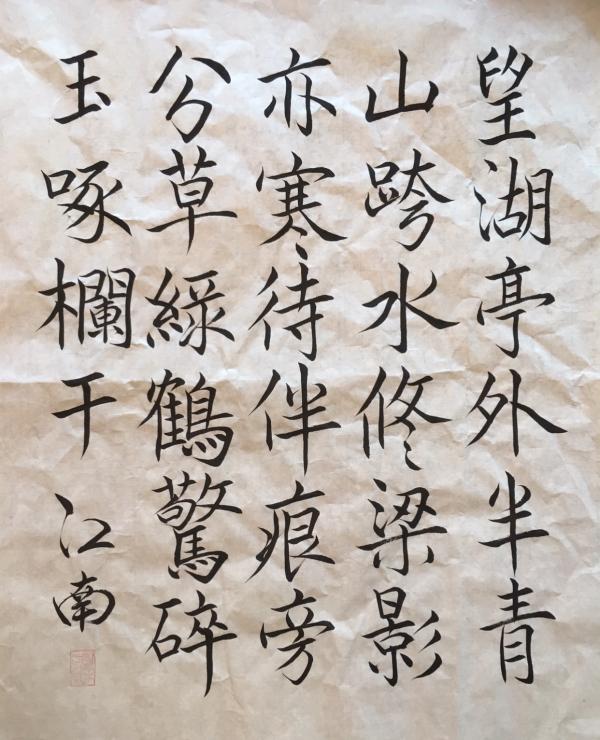 望湖亭外半青
山跨水修梁影
亦寒待伴痕旁
分草綠鶴驚碎
玉啄欄干
江南